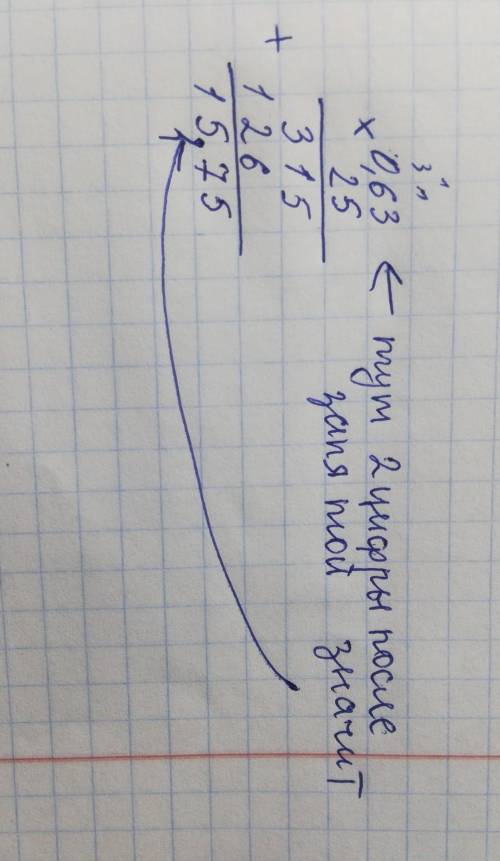 3 1
1
× 0,63 ← тут 2 цифры после
25 запятой значит
315
+
126
15,75